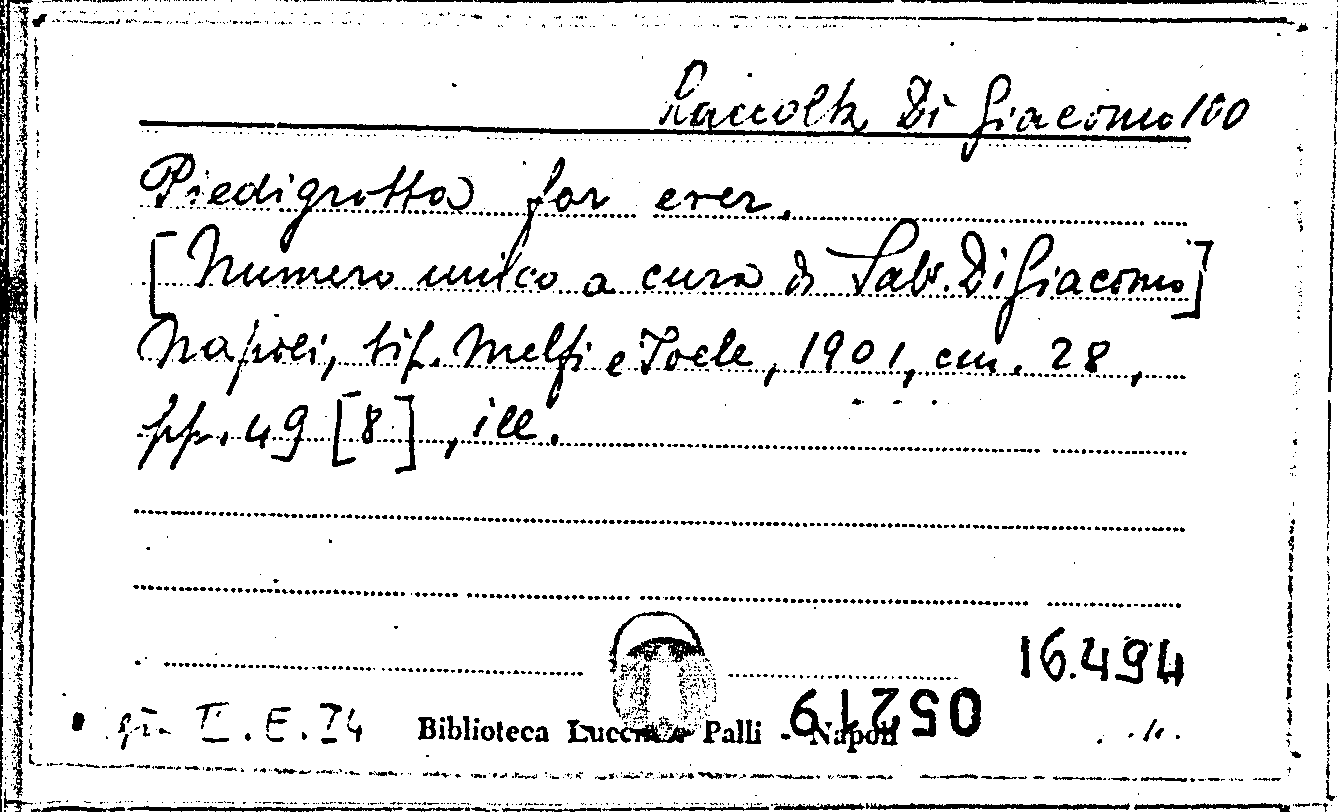 Raccolta Di Giacomo 100
Piedigrotta for ever.
[Numero unico a cura di Salv. Di Giacomo]
Napoli, tip. Melfi e Joele, 1901, cm. 28,
pp. 49 [8], ill.
16.494
già II. E. 74
Biblioteca Lucchesi Palli - Napoli
05219